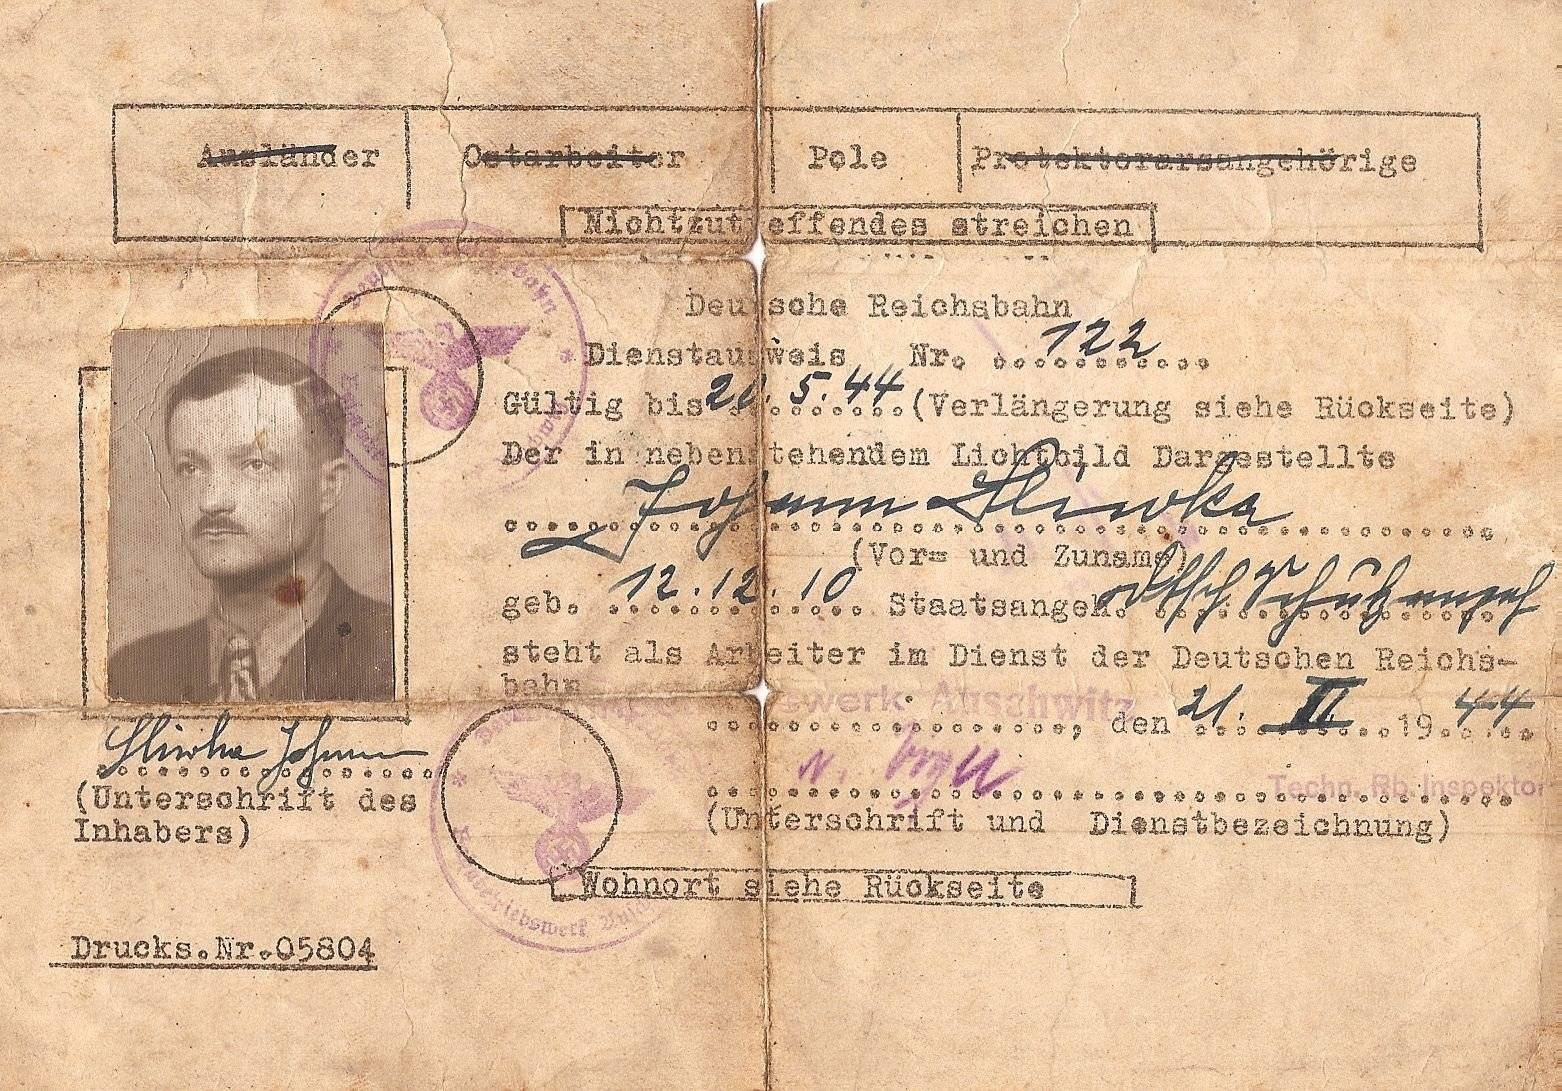 Ausländer Ostarbeiter Pole Protektorarsangehörige
Nichtzutreffendes streichen
Deutsche Reichsbahn
Dienstausweis Nr. 122
Gültig bis 20.5.44 (Verlängerung siehe Rückseite)
Der in nebenstehendem Lichtbild Dargestellte
Johann Sliwka
(Vor= und Zuname)
geb. 12.12.10 Staatsangeh. dtsch Schutzangeh
steht als Arbeiter im Dienst der Deutschen Reichs-
bahn
werk Auschwitz, den 21. II. 1944
Sliwka Johann
Techn. Rb. Inspektor
(Unterschrift des
Inhabers)
(Unterschrift und Dienstbezeichnung)
Wohnort siehe Rückseite
Drucks.Nr.05804